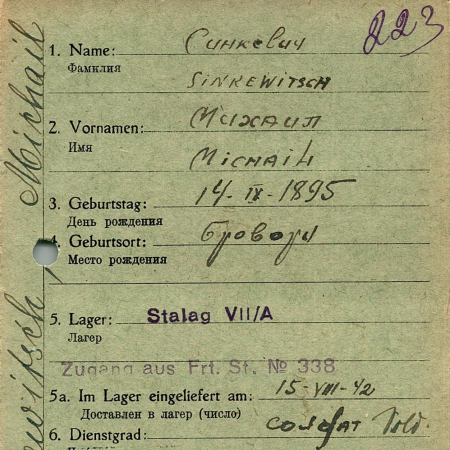 223
1. Name: Синкевич
Фамклия
SINKEWITSCH
2. Vornamen: Михаил
Имя
MICHAIL
3. Geburtstag: 14-IX-1895
День рождения
4. Geburtsort: Бровори
Место рождения
5. Lager: Stalag VII/A
Лагер
Zugang aus Frt. St. № 338
5a. Im Lager eingeliefert am: 15-VIII-42
Доставлен в лагер (число)
6. Dienstgrad: солдат Sold.
ewitsch, Michail